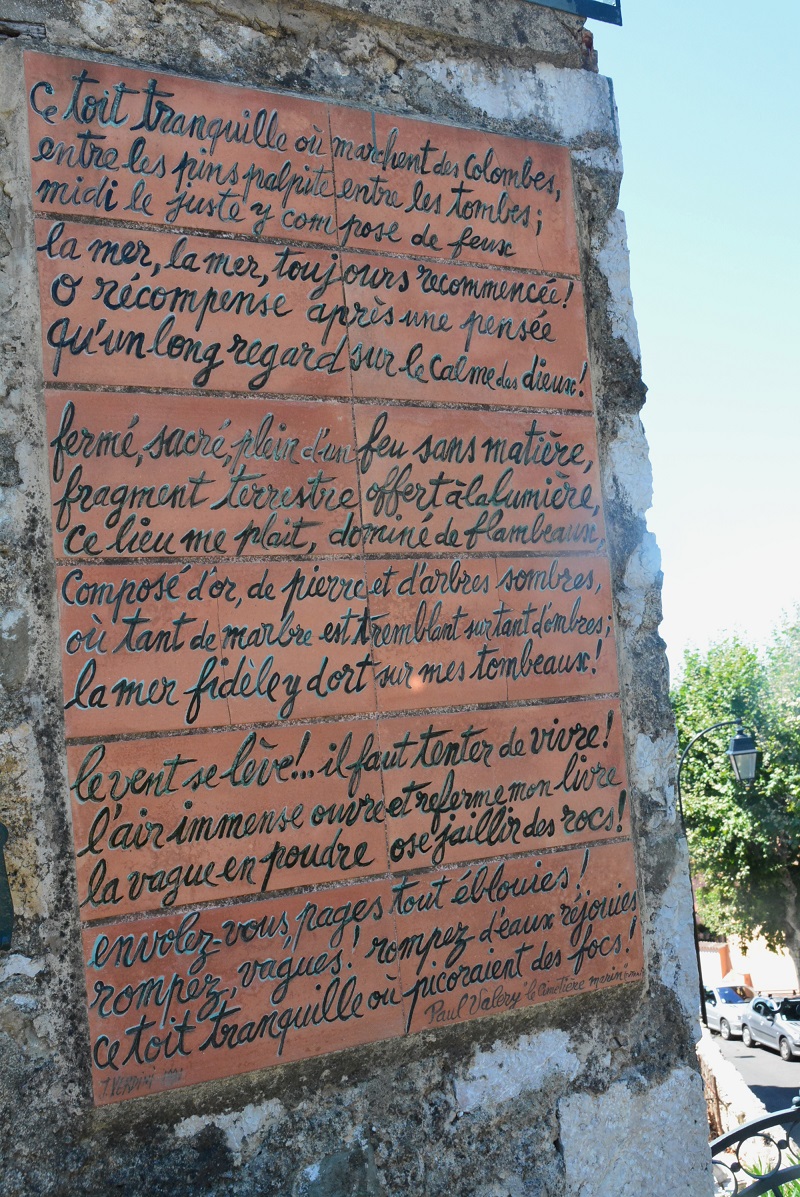 Ce toit tranquille où marchent des colombes,
entre les pins palpite entre les tombes;
midi le juste y compose de feux
la mer, la mer, toujours recommencée!
O récompense après une pensée
qu'un long regard sur le calme des dieux!
fermé, sacré, plein d'un feu sans matière,
fragment terrestre offert à la lumière,
ce lieu me plait, dominé de flambeaux,
Composé d'or, de pierre et d'arbres sombres,
où tant de marbre est tremblant sur tant d'ombres;
la mer fidèle y dort sur mes tombeaux!
le vent se lève!... il faut tenter de vivre!
l'air immense ouvre et referme mon livre
la vague en poudre ose jaillir des rocs!
envolez-vous, pages tout éblouies!
rompez, vagues! rompez d'eaux réjouies
ce toit tranquille où picoraient des focs!
Paul Valery "le Cimetière marin"